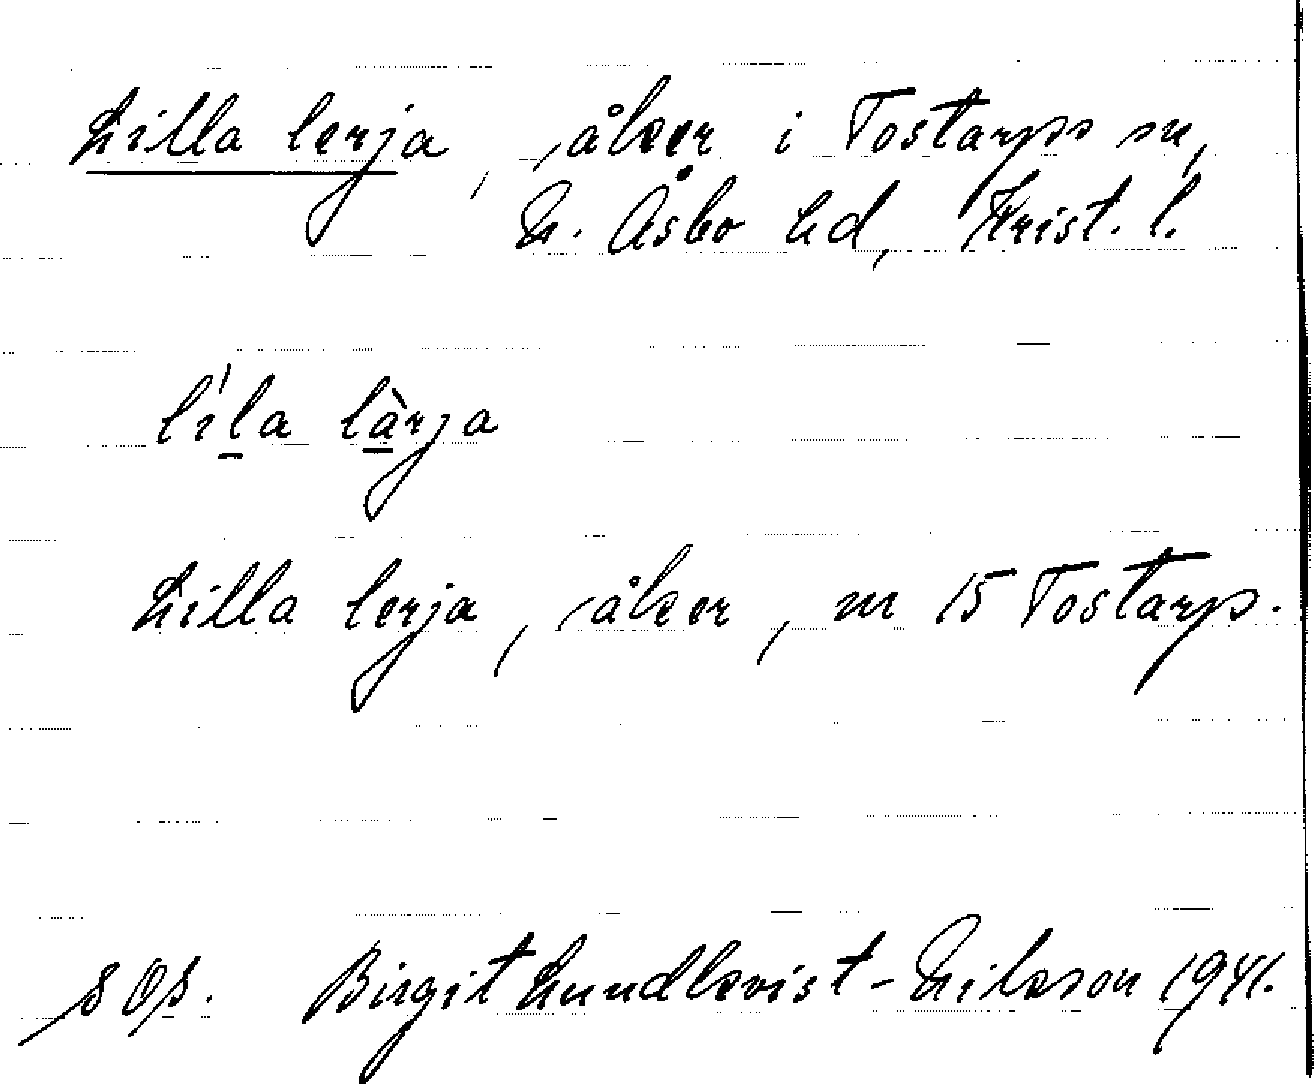 Lilla lerja, åker i Tostarps sn,
N. Åsbo hd, Krist. l.
líla làrja
Lilla lerja, åker, nr 15 Tostarp.
Birgit Lundkvist-Nilsson 1941.